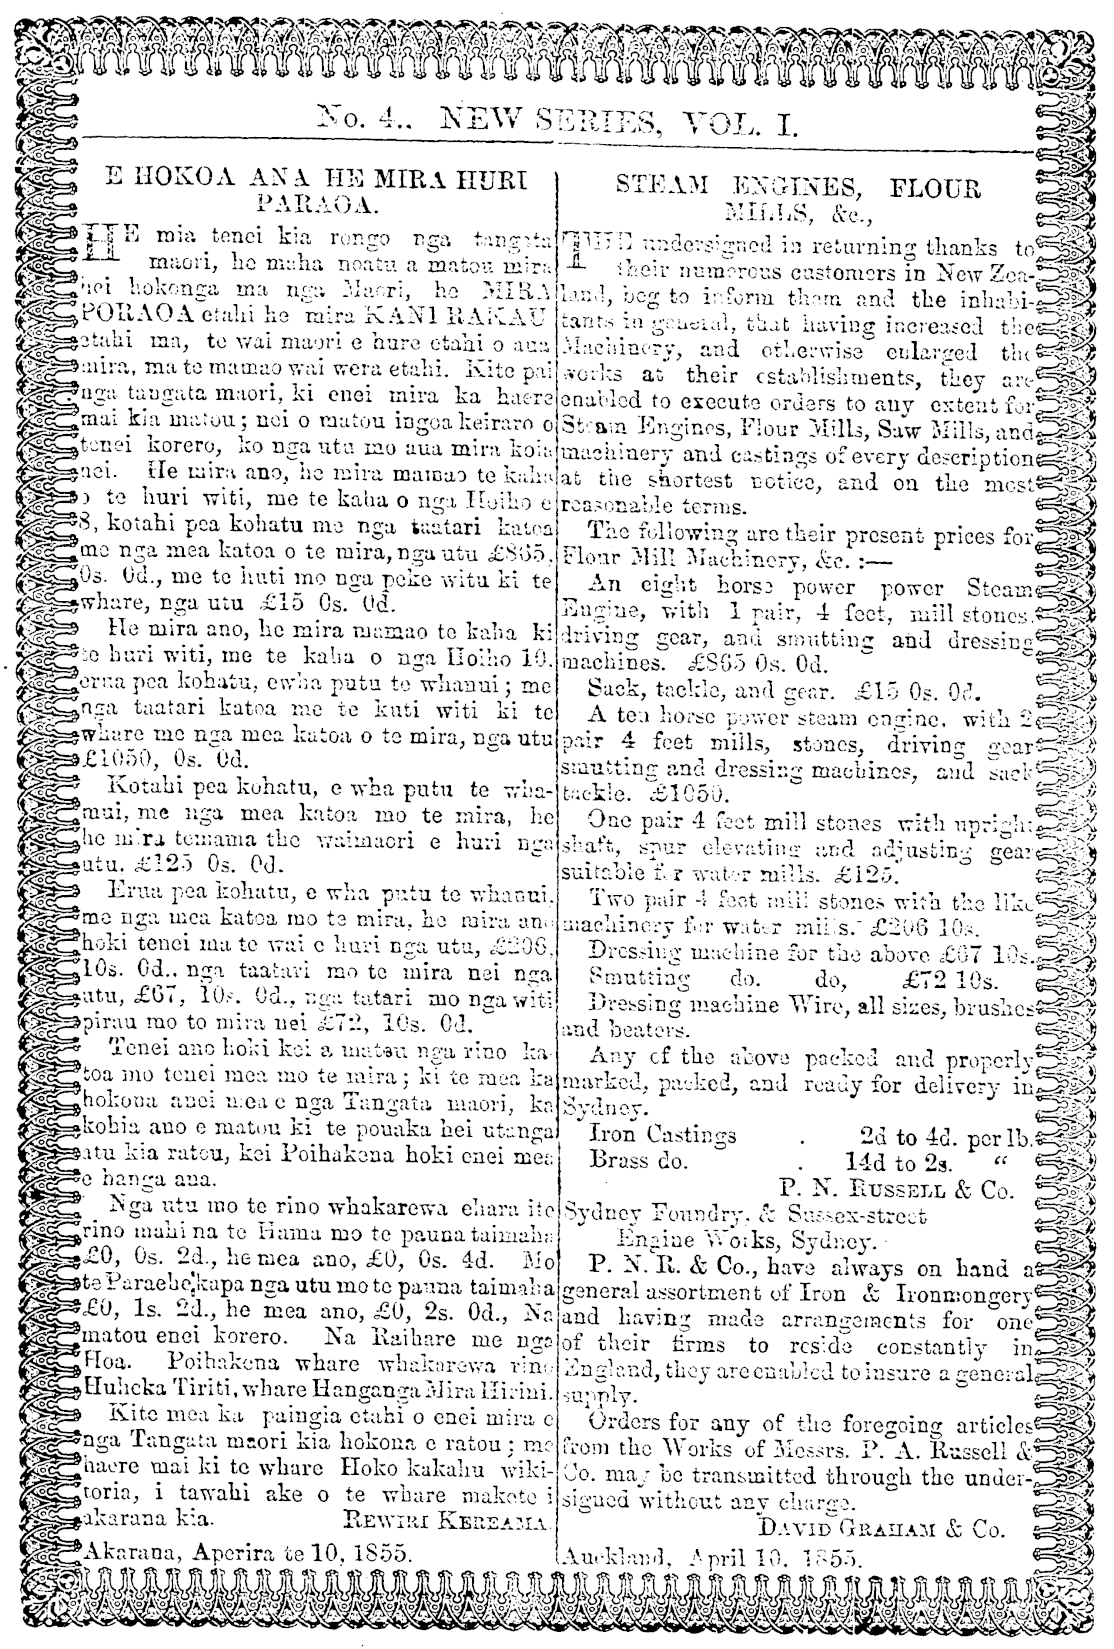 No. 4.. NEW SERIES, VOL. I.
E HOKOA ANA HE MIRA HURI
PARAOA.
HE mia tenei kia rongo nga tangata
maori, he maha noatu a matou mira
hei hokonga ma nga Maori, he MIRA
PORAOA etahi he mira KANI RAKAU
etahi ma, te wai maori e hure etahi o aua
mira, ma te mamao wai wera etahi. Kite pai
nga tangata maori, ki enei mira ka haere
mai kia matou; nei o matou ingoa keiraro o
tenei korero, ko nga utu mo aua mira koia
nei. He mira ano, he mira mamao te kaha
o te huri witi, me te kaha o nga Hoiho e
8, kotahi pea kohatu me nga taatari katoa
me nga mea katoa o te mira, nga utu £865,
0s. 0d., me te huti mo nga peke witu ki te
whare, nga utu £15 0s. 0d.
He mira ano, he mira mamao te kaha ki
te huri witi, me te kaha o nga Hoiho 10.
erua pea kohatu, ewha putu te whanui; me
nga taatari katoa me te kuti witi ki te
whare me nga mea katoa o te mira, nga utu
£1050, 0s. 0d.
Kotahi pea kohatu, e wha putu te wha-
nui, me nga mea katoa mo te mira, he
he mira temama the waimaori e huri nga
utu. £125 0s. 0d.
Erua pea kohatu, e wha putu te whanui,
me nga mea katoa mo te mira, he mira ano
hoki tenei ma te wai e huri nga utu, £206,
10s. 0d.. nga taatari mo te mira nei nga
utu, £67, 10s. 0d., nga tatari mo nga witi
pirau mo to mira nei £72, 10s. 0d.
Tenei ano hoki kei a matou nga rino ka-
toa mo tenei mea mo te mira; ki te mea ka
hokona anei mea e nga Tangata maori, ka
kohia ano e matou ki te pouaka hei utanga
atu kia ratou, kei Poihakena hoki enei mea
e hanga ana.
Nga utu mo te rino whakarewa ehara ite
rino mahi na te Hama mo te pauna taimaha
£0, 0s. 2d., he mea ano, £0, 0s. 4d. Mo
te Paraehe, kapa nga utu mo te pauna taimaha
£0, 1s. 2d., he mea ano, £0, 2s. 0d., Na
matou enei korero. Na Raihare me nga
Hoa. Poihakena whare whakarewa rino
Huheka Tiriti, whare Hanganga Mira Hirini.
Kite mea ka paingia etahi o enei mira e
nga Tangata maori kia hokona e ratou; me
haere mai ki te whare Hoko kakahu wiki-
toria, i tawahi ake o te whare makete i
akarana kia. REWIRI KEREAMA
Akarana, Aperira te 10, 1855.
STEAM ENGINES, FLOUR
MILLS, &c.,
THE undersigned in returning thanks to
their numerous customers in New Zea-
land, beg to inform them and the inhabi-
tants in general, that having increased the
Machinery, and otherwise enlarged the
works at their establishments, they are
enabled to execute orders to any extent for
Steam Engines, Flour Mills, Saw Mills, and
machinery and castings of every description
at the shortest notice, and on the most
reasonable terms.
The following are their present prices for
Flour Mill Machinery, &c. :—
An eight horse power power Steam
Engine, with 1 pair, 4 feet, mill stones,
driving gear, and smutting and dressing
machines. £865 0s. 0d.
Sack, tackle, and gear. £15 0s. 0d.
A ten horse power steam engine. with 2
pair 4 feet mills, stones, driving gear
smutting and dressing machines, and sack
tackle. £1050.
One pair 4 feet mill stones with upright
shaft, spur elevating and adjusting gear
suitable for water mills. £125.
Two pair 4 feet mill stones with the like
machinery for water mills. £206 10s.
Dressing machine for the above £67 10s.
Smutting do. do, £72 10s.
Dressing machine Wire, all sizes, brushes
and beaters.
Any of the above packed and properly
marked, packed, and ready for delivery in
Sydney.
Iron Castings . 2d to 4d. per lb.
Brass do. . 14d to 2s. “
P. N. RUSSELL & Co.
Sydney Foundry, & Sussex-street
Engine Works, Sydney.
P. N. R. & Co., have always on hand a
general assortment of Iron & Ironmongery
and having made arrangements for one
of their firms to reside constantly in
England, they are enabled to insure a general
supply.
Orders for any of the foregoing articles
from the Works of Messrs. P. A. Russell &
Co. may be transmitted through the under-
signed without any charge.
DAVID GRAHAM & Co.
Auckland, April 10. 1855.